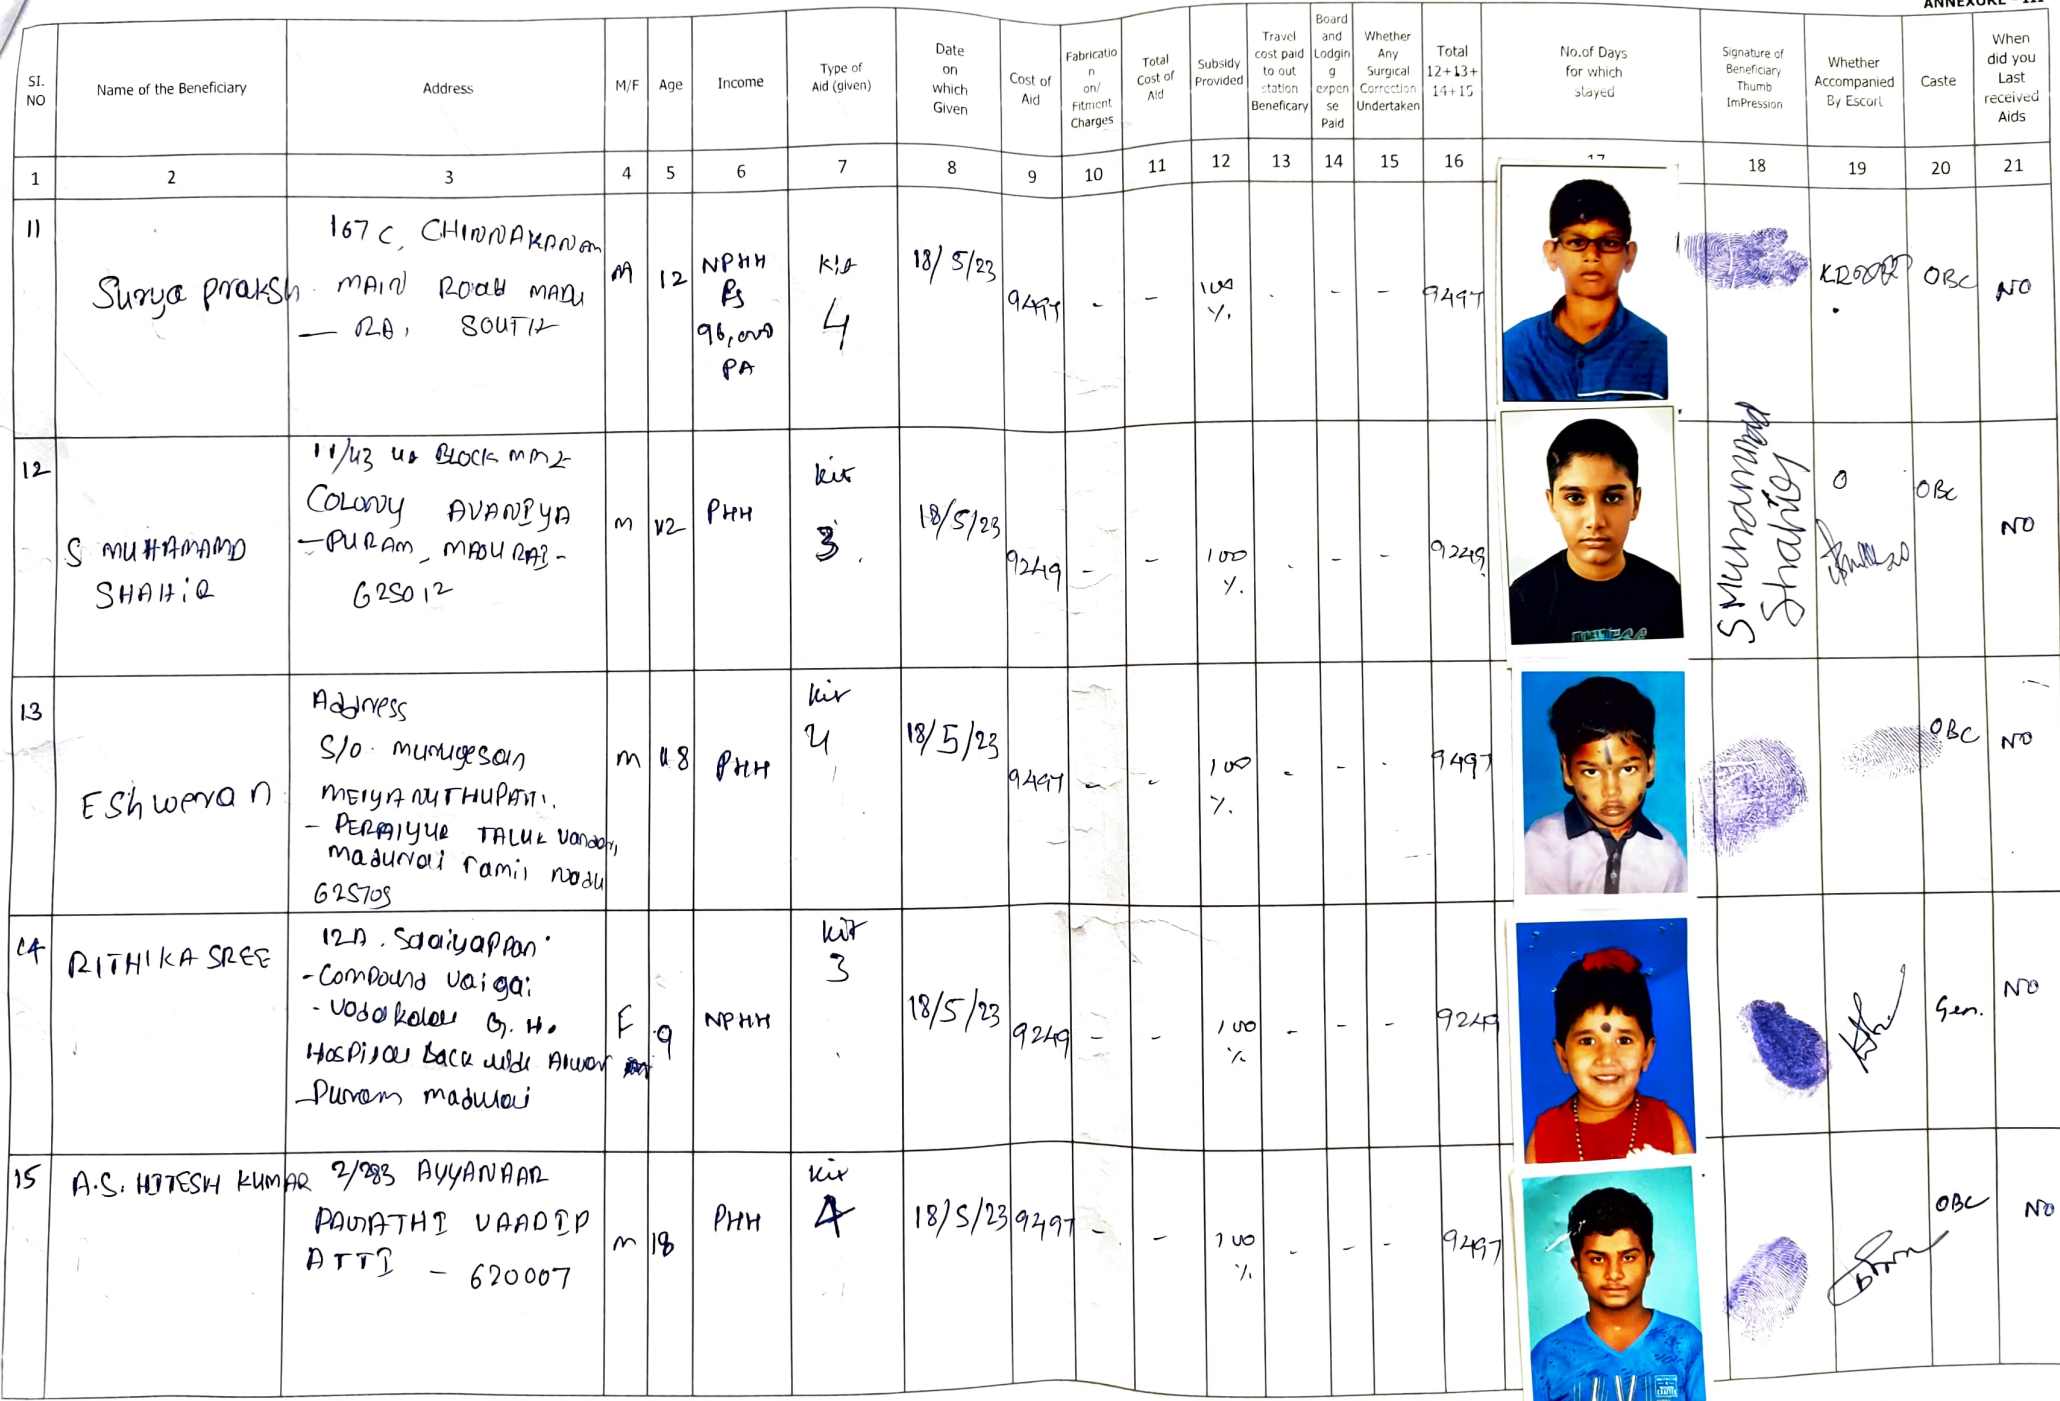 ANNEXURE - III
SI. NO
Name of the Beneficiary
Address
M/F
Age
Income
Type of Aid (given)
Date on which Given
Cost of Aid
Fabricatio n on/ Fitment Charges
Total Cost of Aid
Subsidy Provided
Travel cost paid to out station Beneficary
Board and Lodgin g expen se Paid
Whether Any Surgical Correction Undertaken
Total 12+13+ 14+15
No.of Days for which stayed
Signature of Beneficiary Thumb ImPression
Whether Accompanied By Escort
Caste
When did you Last received Aids
1 2 3 4 5 6 7 8 9 10 11 12 13 14 15 16 17 18 19 20 21
11
Surya praksh
167 C, CHINNAKANAM
MAIN ROAD MADU
- RA, SOUTH
M
12
NPHH
Rs
96,000
PA
Kit
4
18/5/23
9497
-
-
100
%
-
-
-
9497
OBC
NO
12
S MUHAMAMD
SHAHIR
11/43 BLOCK MM2
COLONY AVANIYA
-PURAM, MADURAI-
625012
M
12
PHH
kit
3
18/5/23
9249
-
-
100
%
-
-
-
9249
S Muhammad
Shahir
OBC
NO
13
Eshweran
Address
S/O. murugesan
MEIYANUTHUPATTI.
- PERAIYUR TALUK
madurai Tamil nadu
625705
M
8
PHH
kit
4
18/5/23
9497
-
-
100
%
-
-
-
9497
OBC
NO
14
RITHIKA SREE
12A. Salaiyappan
-Compound vaigai
- G. H.
Hospital back side Alwar
-Puram madurai
F
9
NPHH
kit
3
18/5/23
9249
-
-
100
%
-
-
-
9249
Gen.
NO
15
A.S. HITESH KUMAR
2/283 AYYANAAR
VAADIP
ATTI - 620007
M
18
PHH
kit
4
18/5/23
9497
-
-
100
%
-
-
-
9497
OBC
NO